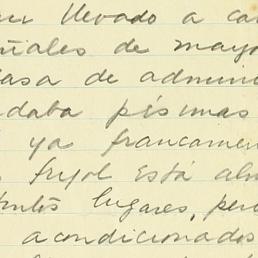 llevado a ca
iales de mayo
asa de admini
daba pésimas
ya francamen
frijol está al
tintos lugares, per
acondicionados